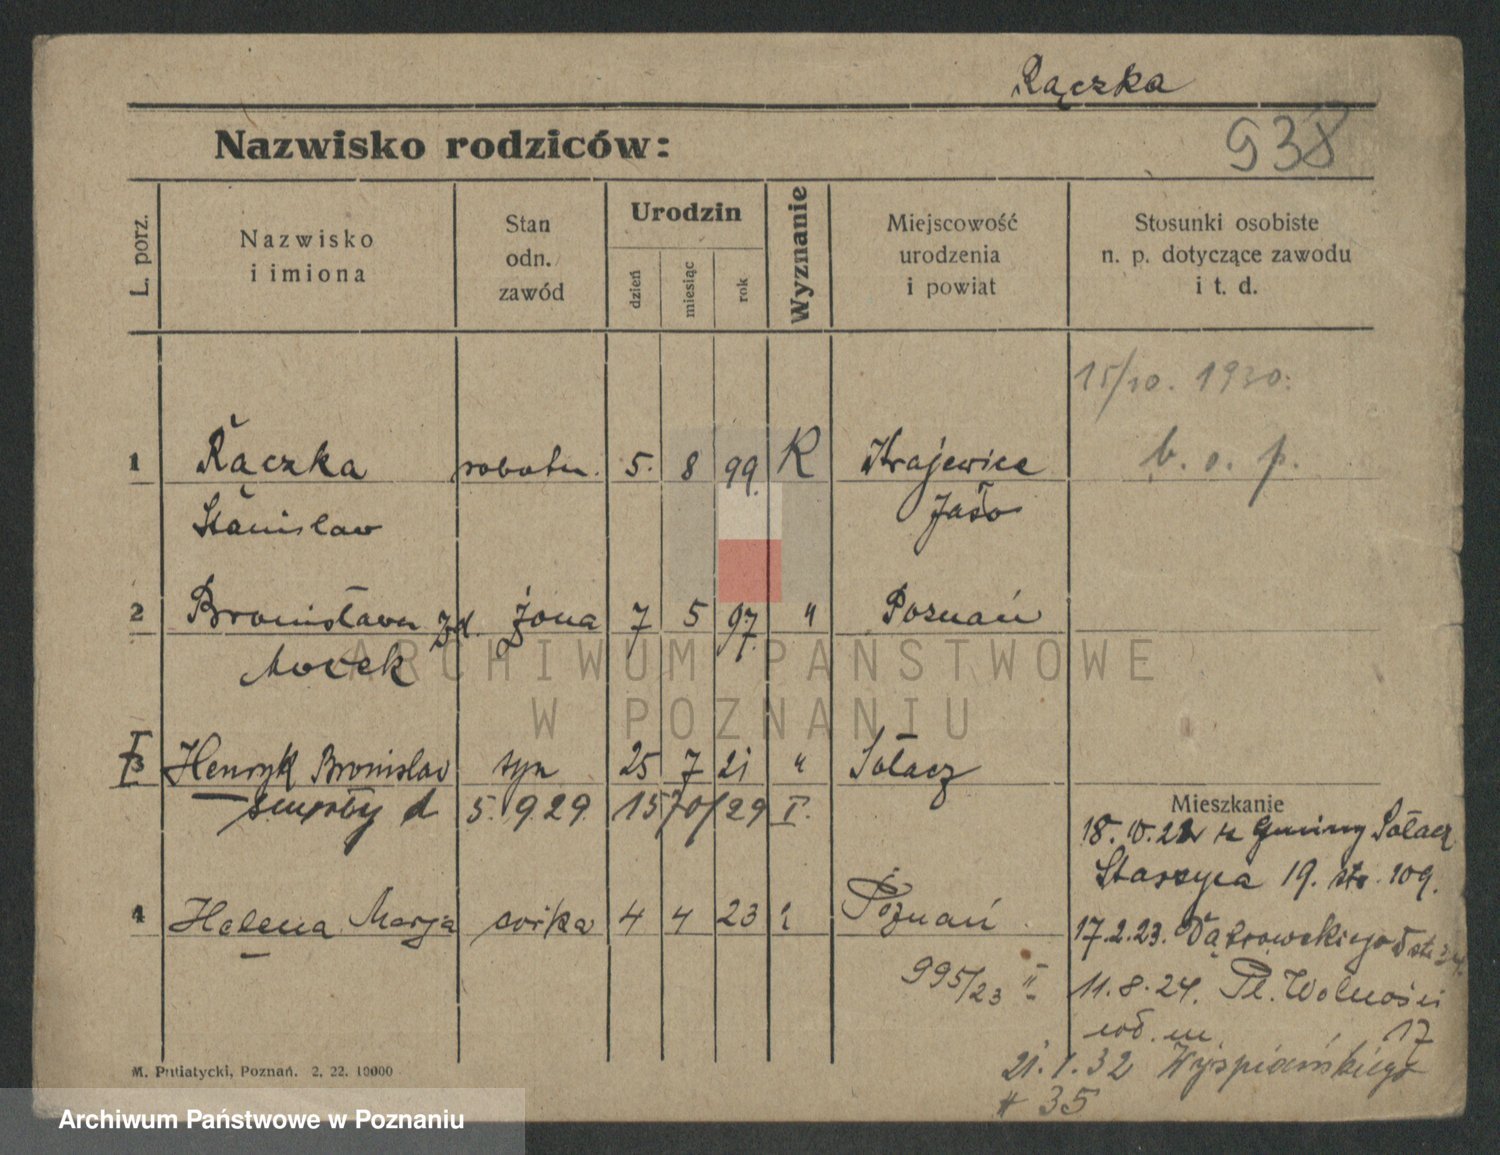 Rączka
Nazwisko rodziców:
938
L. porz.
Nazwisko
i imiona
Stan
odn.
zawód
Urodzin
dzień
miesiąc
rok
Wyznanie
Miejscowość
urodzenia
i powiat
Stosunki osobiste
n. p. dotyczące zawodu
i t. d.
15/10. 1930.
1 Rączka robotn. 5. 8 99. R Krajewice b. o. p.
Stanisław Jasło
2 Bronisława zd. żona 7 5 97. " Poznań
Mocek
3 Henryk Bronisław syn 25 7 21 " Sołacz
zmarły d 5. 9 29. 1570/29 I.
Mieszkanie
18. 10. 22 z Gminy Sołacz
Staszyca 19. str. 109.
4 Helena Marja córka 4 4 23 Poznań
17.2.23. Dąbrowskiego
995/23 II
11. 8. 24. Pl. Wolności
17
21. 1. 32 Wyspiańskiego
# 35
M. Putiatycki, Poznań. 2. 22. 10000
ARCHIWUM PAŃSTWOWE
W POZNANIU
Archiwum Państwowe w Poznaniu